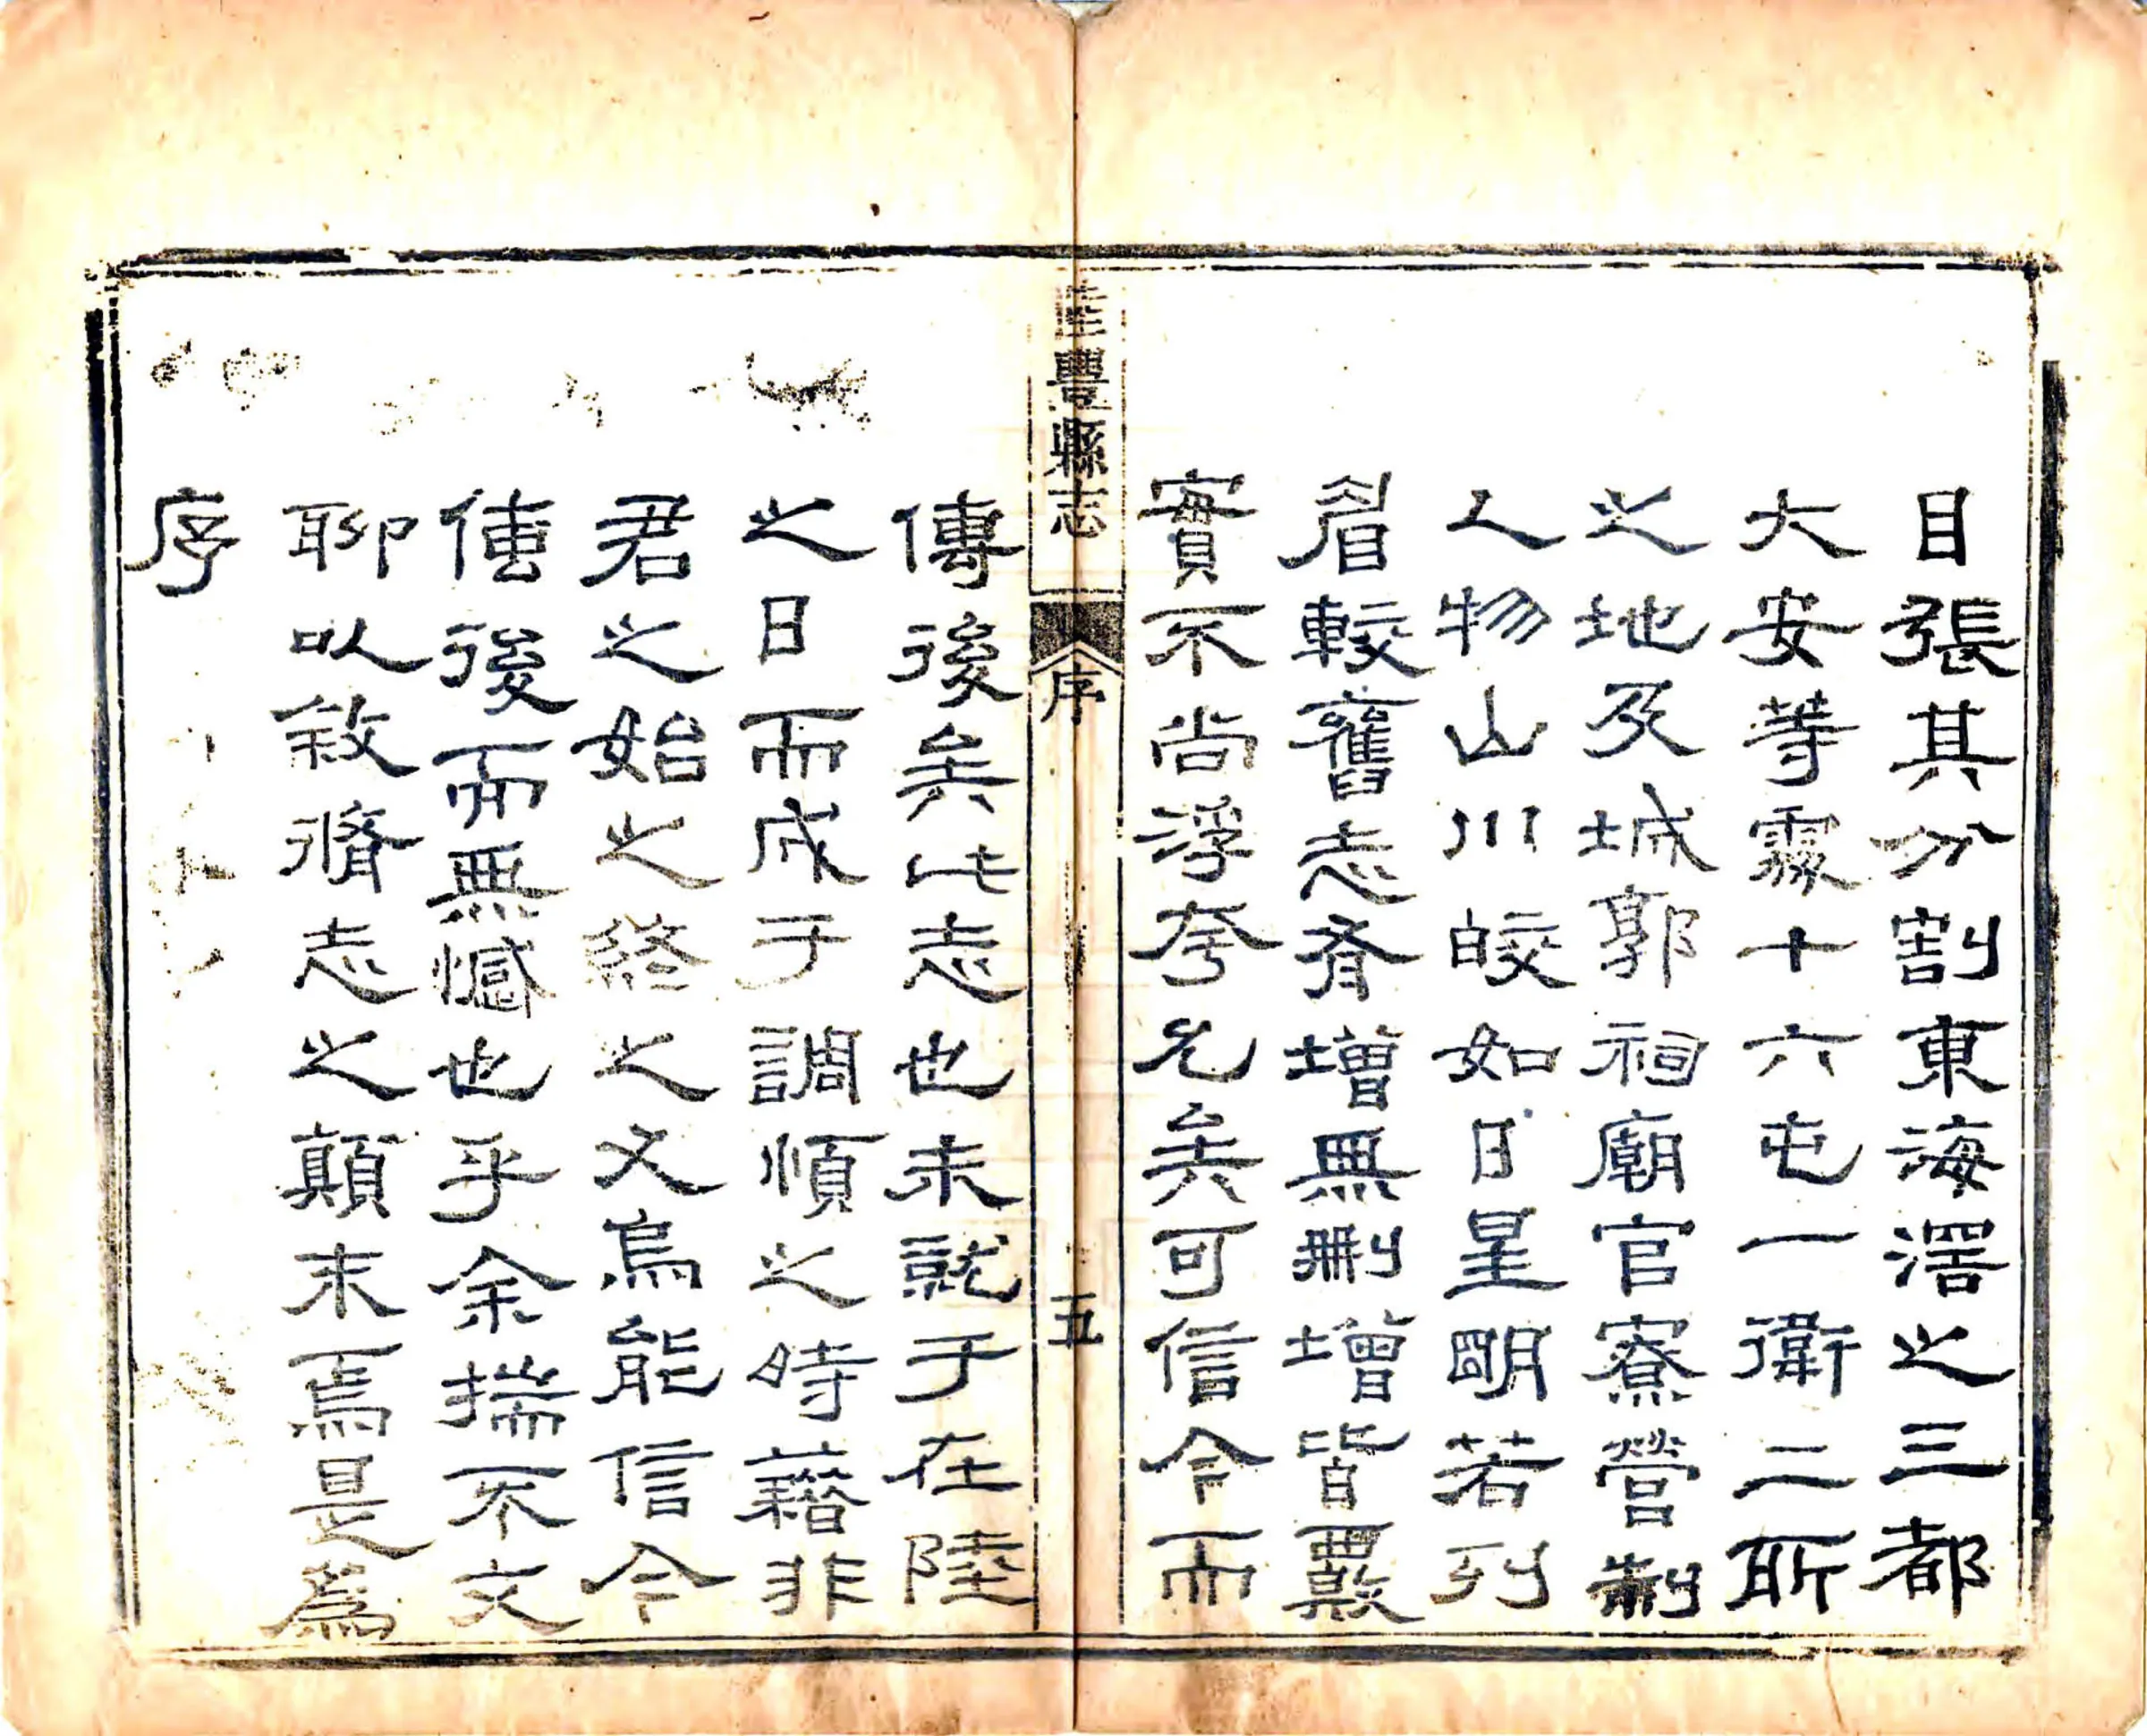 目張其分割東海滘之三都
大安等處十六屯一衛二所
之地及城郭祠廟官寮營制
人物山川皎如日星明若列
眉較舊志有增無刪增皆覈
實不尚浮夸允矣可信今而
陸豐縣志
序
五
傳後矣此志也未就于在陸
之日而成于調順之時藉非
君之始之終之又烏能信今
傳後而無憾也乎余揣不文
聊以敘痟志之顛末焉是為
序